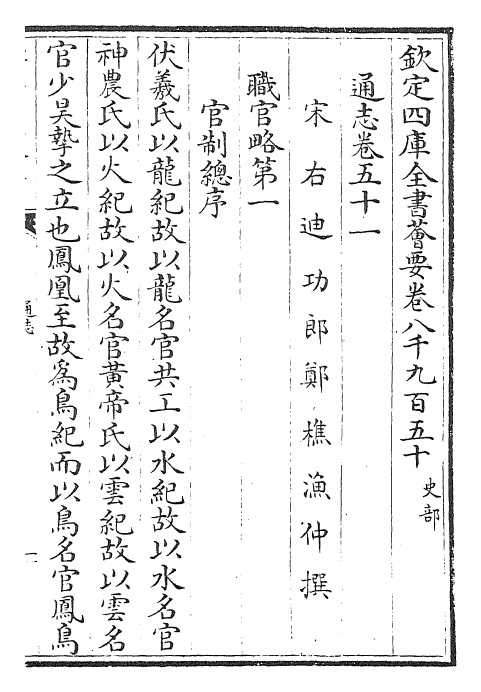 欽定四庫全書薈要卷八千九百五十 史部
通志卷五十一
宋右迪功郎鄭樵漁仲撰
職官略第一
官制總序
伏羲氏以龍紀故以龍名官共工以水紀故以水名官
神農氏以火紀故以火名官黃帝氏以雲紀故以雲名
官少昊摯之立也鳳凰至故為鳥紀而以鳥名官鳳鳥
通志
一